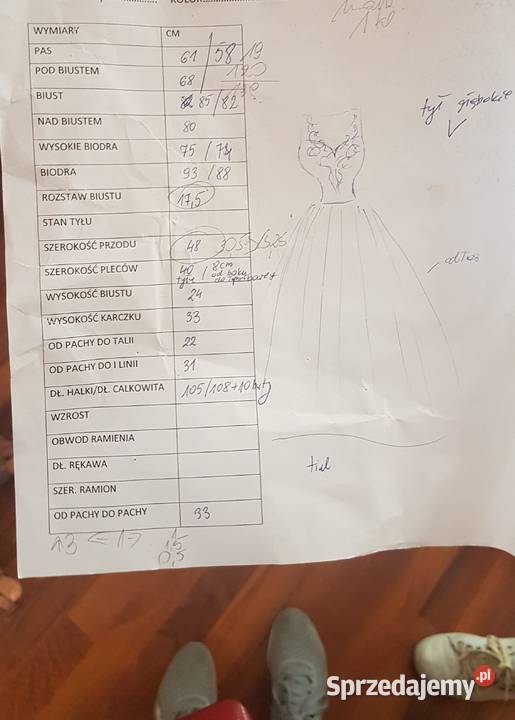 WYMIARY CM
PAS 61 / 58 19
POD BIUSTEM 68 120
BIUST 85 / 82
NAD BIUSTEM 80
WYSOKIE BIODRA 75 / 74
BIODRA 93 / 88
ROZSTAW BIUSTU 17,5
STAN TYŁU
SZEROKOŚĆ PRZODU 48
SZEROKOŚĆ PLECÓW 40 / 8cm
tył od boku
WYSOKOŚĆ BIUSTU 24
WYSOKOŚĆ KARCZKU 33
OD PACHY DO TALII 22
OD PACHY DO I LINII 31
DŁ. HALKI/DŁ. CALKOWITA 105/108+10 buty
WZROST
OBWOD RAMIENIA
DŁ. RĘKAWA
SZER. RAMION
OD PACHY DO PACHY 33
tył głębokie
tiul
1,5
0,5
Sprzedajemy.pl